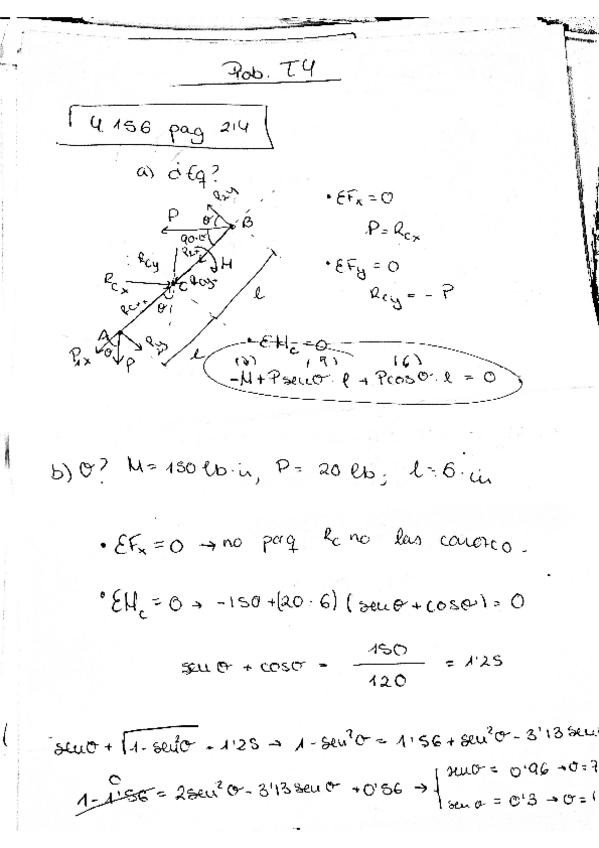 Prob. T4
4.156 pag 214
a) ¿Eq?
P θ B
90-θ
M
Rcy
Rcx C
θ l
A l
θ P
• ΣFx = 0
P = Rcx
• ΣFy = 0
Rcy = - P
• ΣMc = 0
-M + P senθ · l + P cosθ · l = 0
b) θ? M = 150 lb·in, P = 20 lb; l = 6 in
• ΣFx = 0 → no porq Rc no las conozco.
• ΣMc = 0 → -150 + (20·6) (senθ + cosθ) = 0
senθ + cosθ = 150 / 120 = 1'25
senθ + √1-sen²θ = 1'25 → 1-sen²θ = 1'56 + sen²θ - 3'13 sen
1-1'56 = 2sen²θ - 3'13 senθ + 0'56 → senθ = 0'96 → θ = 7
senθ = 0'3 → θ =